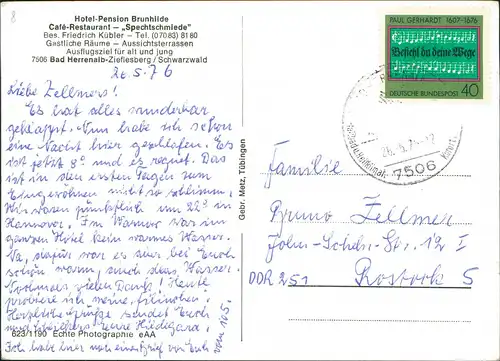 8
Hotel-Pension Brunhilde
Café-Restaurant — „Spechtschmiede"
Bes. Friedrich Kübler — Tel. (07083) 8180
Gastliche Räume — Aussichtsterrassen
Ausflugsziel für alt und jung
7506 Bad Herrenalb-Zieflesberg / Schwarzwald
26.5.76
Liebe Zellmers!
Es hat alles sonderbar
geklappt. Nun habe ich schon
eine Nacht hier geschlafen. Es
ist jetzt 8° und es regnet. Das
ist in den ersten Tagen zum
Eingewöhnen nicht so schlimm.
Wir waren pünktlich um 22⁰ in
Hannover. Im Warnow war im
ganzen Hotel kein warmes Wasser.
Na, dafür war es nur bei Euch
schön warm, auch das Wasser.
Nochmals vielen Dank! Heute
probiere ich meine
Herzliche Grüße sendet Euch
und Eure Hildegard.
Ich habe hier noch einen Brief von Euch
vom 16.5.
623/1190 Echte Photographie eAA
Gebr. Metz, Tübingen
PAUL GERHARDT 1607-1676
Befiehl du deine Wege
DEUTSCHE BUNDESPOST 40
26.5.76-12
7506
Familie
Bruno Zellmer
John-Schehr-Str. 12 I
DDR 251 Rostock 5